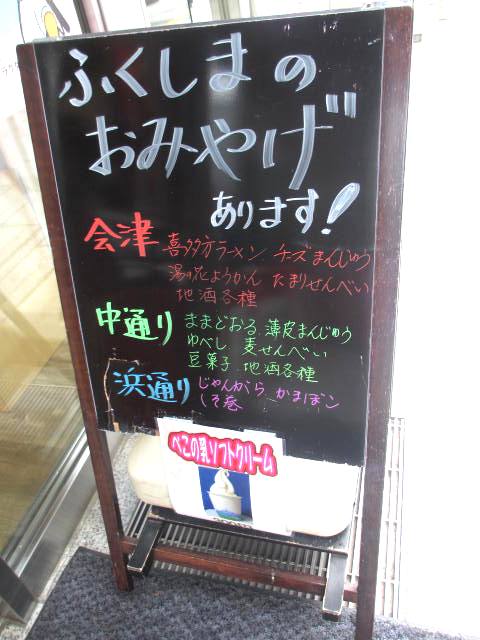 ふくしまの
おみやげ
あります!
会津 喜多方ラーメン チーズまんじゅう
湯の花ようかん たまりせんべい
地酒各種
中通り ままどおる 薄皮まんじゅう
ゆべし 麦せんべい
豆菓子 地酒各種
浜通り じゃんがら かまぼこ
しそ巻
べこの乳ソフトクリーム